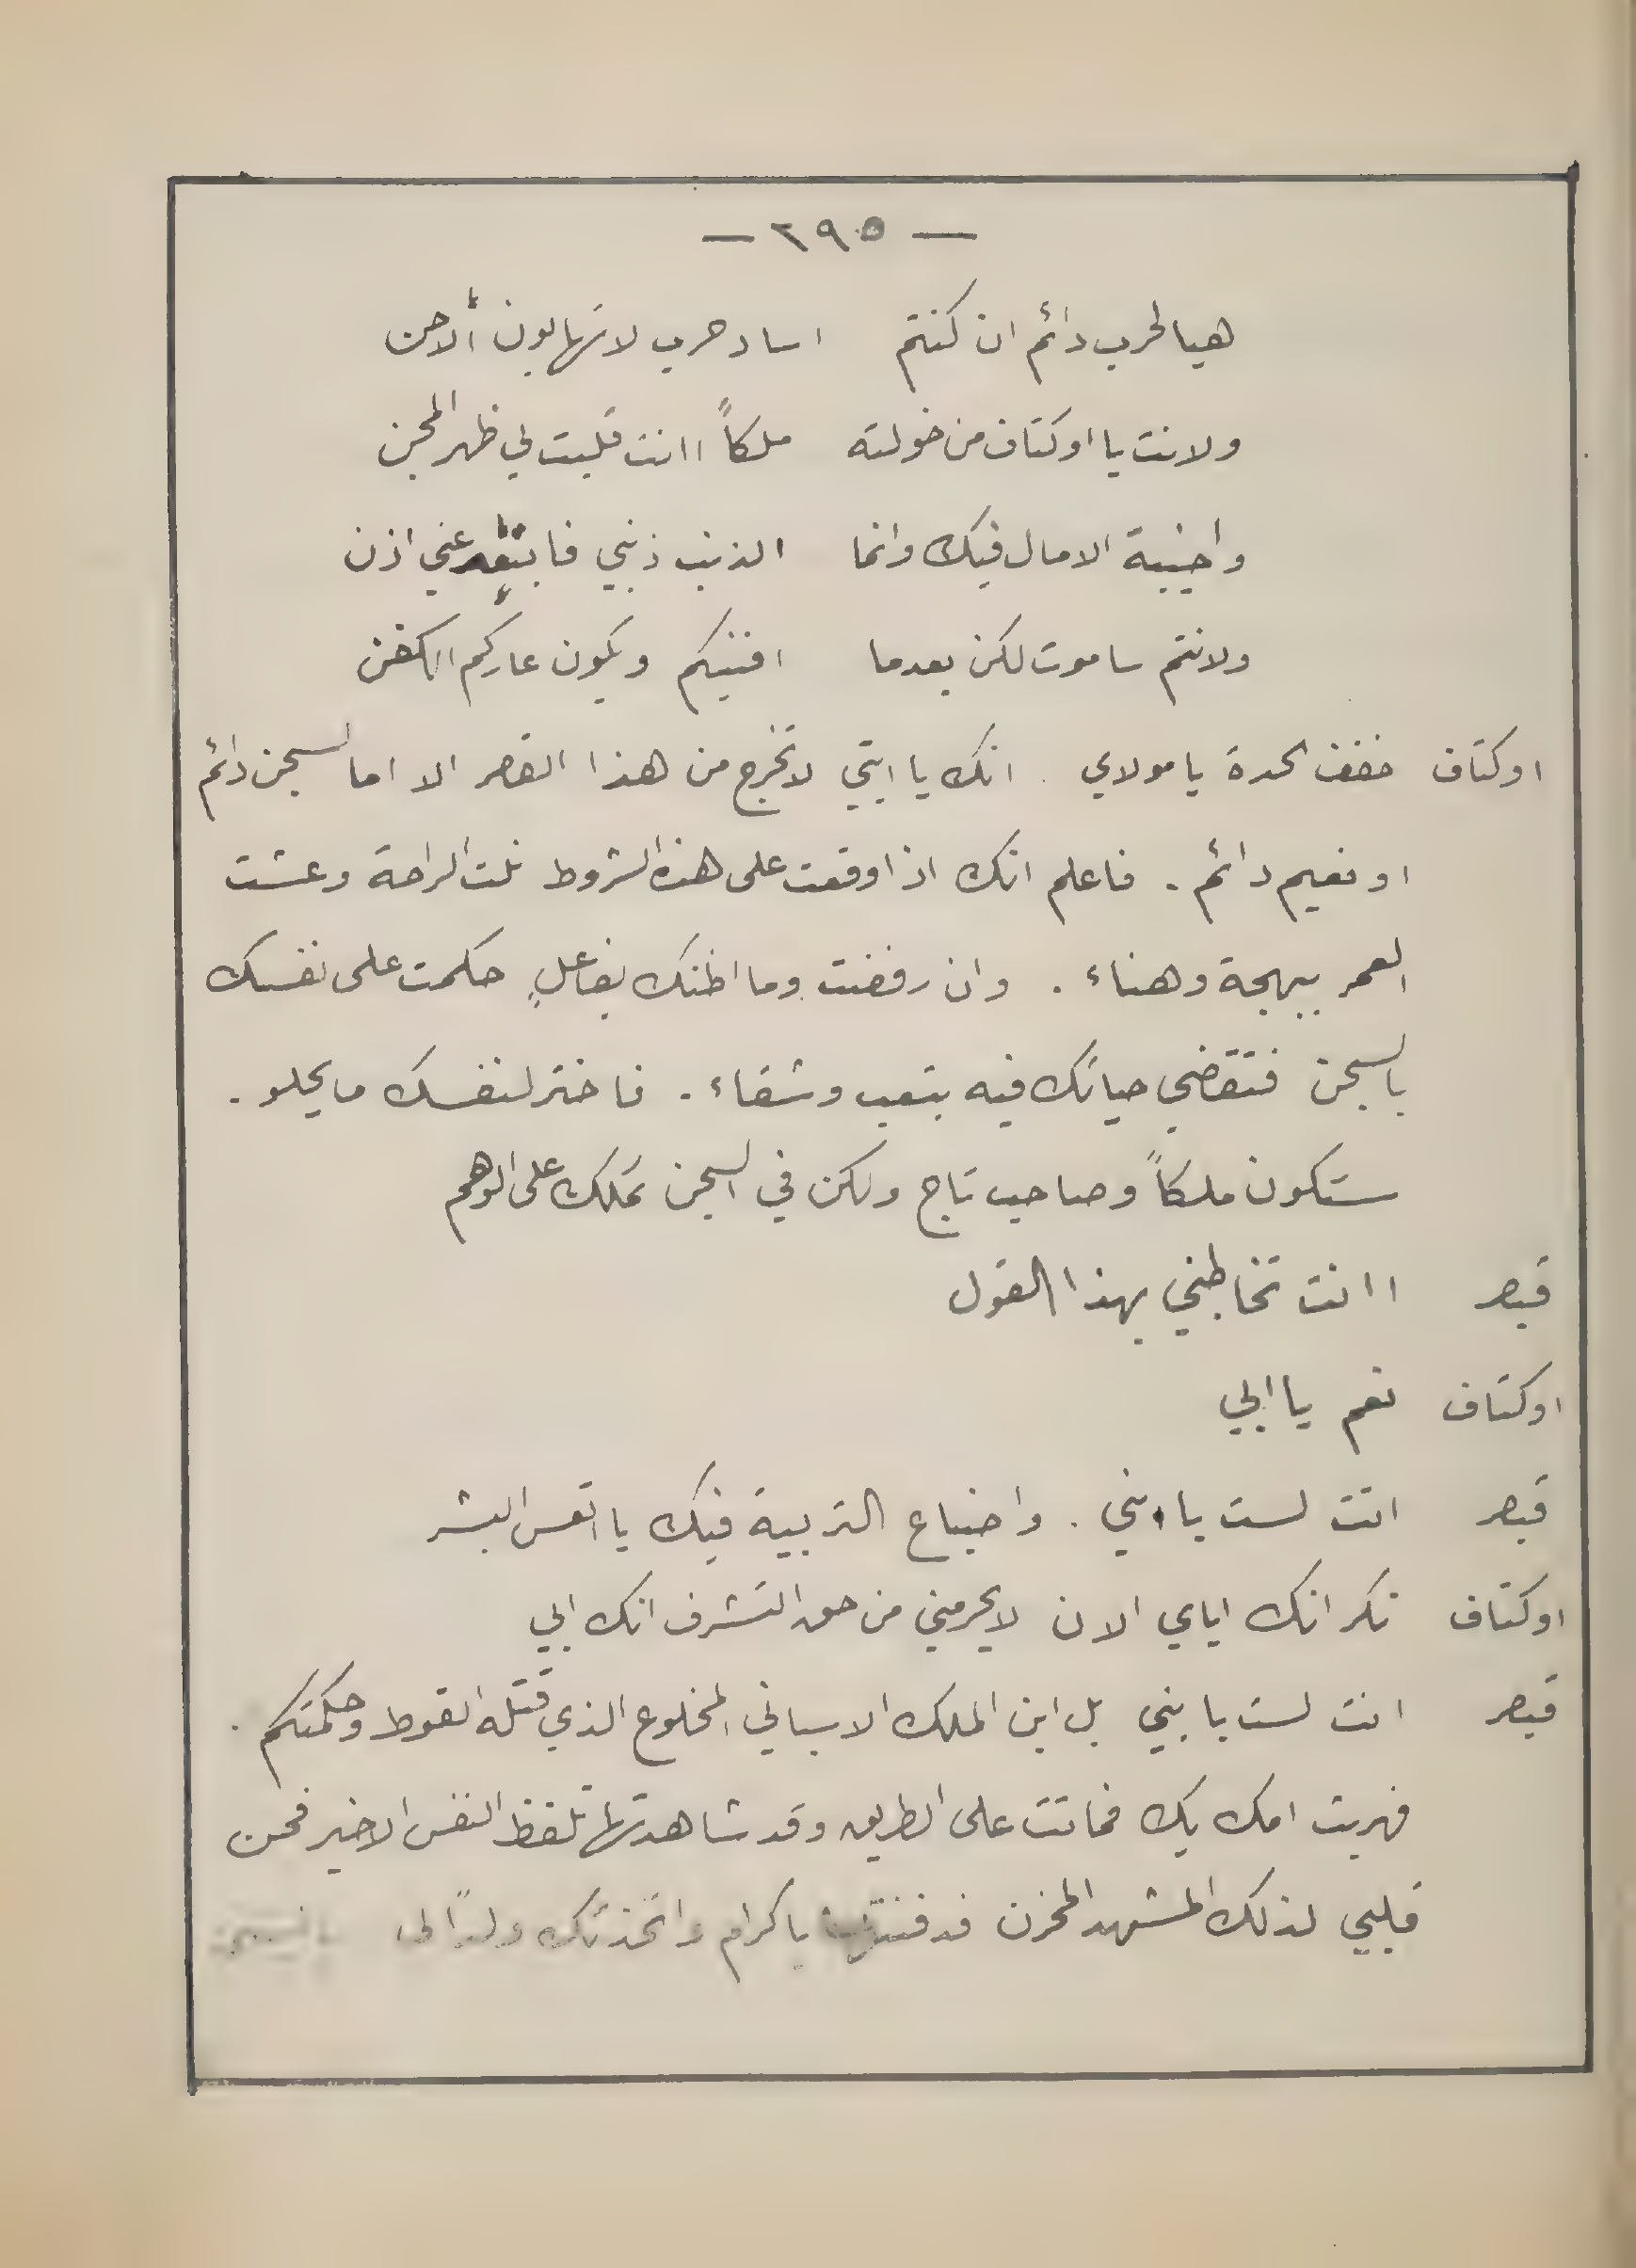 — ٢٩٥ —
هيا لحرب دائم ان كنتم اساد حرب لا تهابون الاحن
ولانت يا اوكتاف من خولته ملكاً اانت قلبت لي ظهر المجن
واخيبة الامال فيك وانما الذنب ذنبي فابتعد عني اذن
ولانتم ساموت لكن بعدما افنيكم ويكون عاركم الكفن
اوكتاف خفف الحدة يا مولاي . انك يا ابتي لا تخرج من هذا القصر الا اما لسجن دائم
او نعيم دائم . فاعلم انك اذا وقعت على هذه الشروط نلت الراحة وعشت
العمر ببهجة وهناء . وان رفضت وما اظنك بفاعلٍ حكمت على نفسك
بالسجن فتقضي حياتك فيه بتعب وشقاء . فاختر لنفسك ما يحلو .
ستكون ملكاً وصاحب تاج ولكن في السجن تملك على الوهم
قيصر اانت تخاطبني بهذا القول
اوكتاف نعم يا ابي
قيصر انت لست يا بني . واضياع التربية فيك يا اتعس البشر
اوكتاف نكرانك اياي الان لا يحرمني من حق التشرف انك ابي
قيصر انت لست يا بني بل ابن الملك الاسباني المخلوع الذي قتله القوط وحكمتكم .
فهربت امك بك فماتت على الطريق وقد شاهدتها تلفظ النفس الاخير فحن
قلبي لذلك المشهد المحزن فدفنتها باكرام واتخذتك ولداً لي